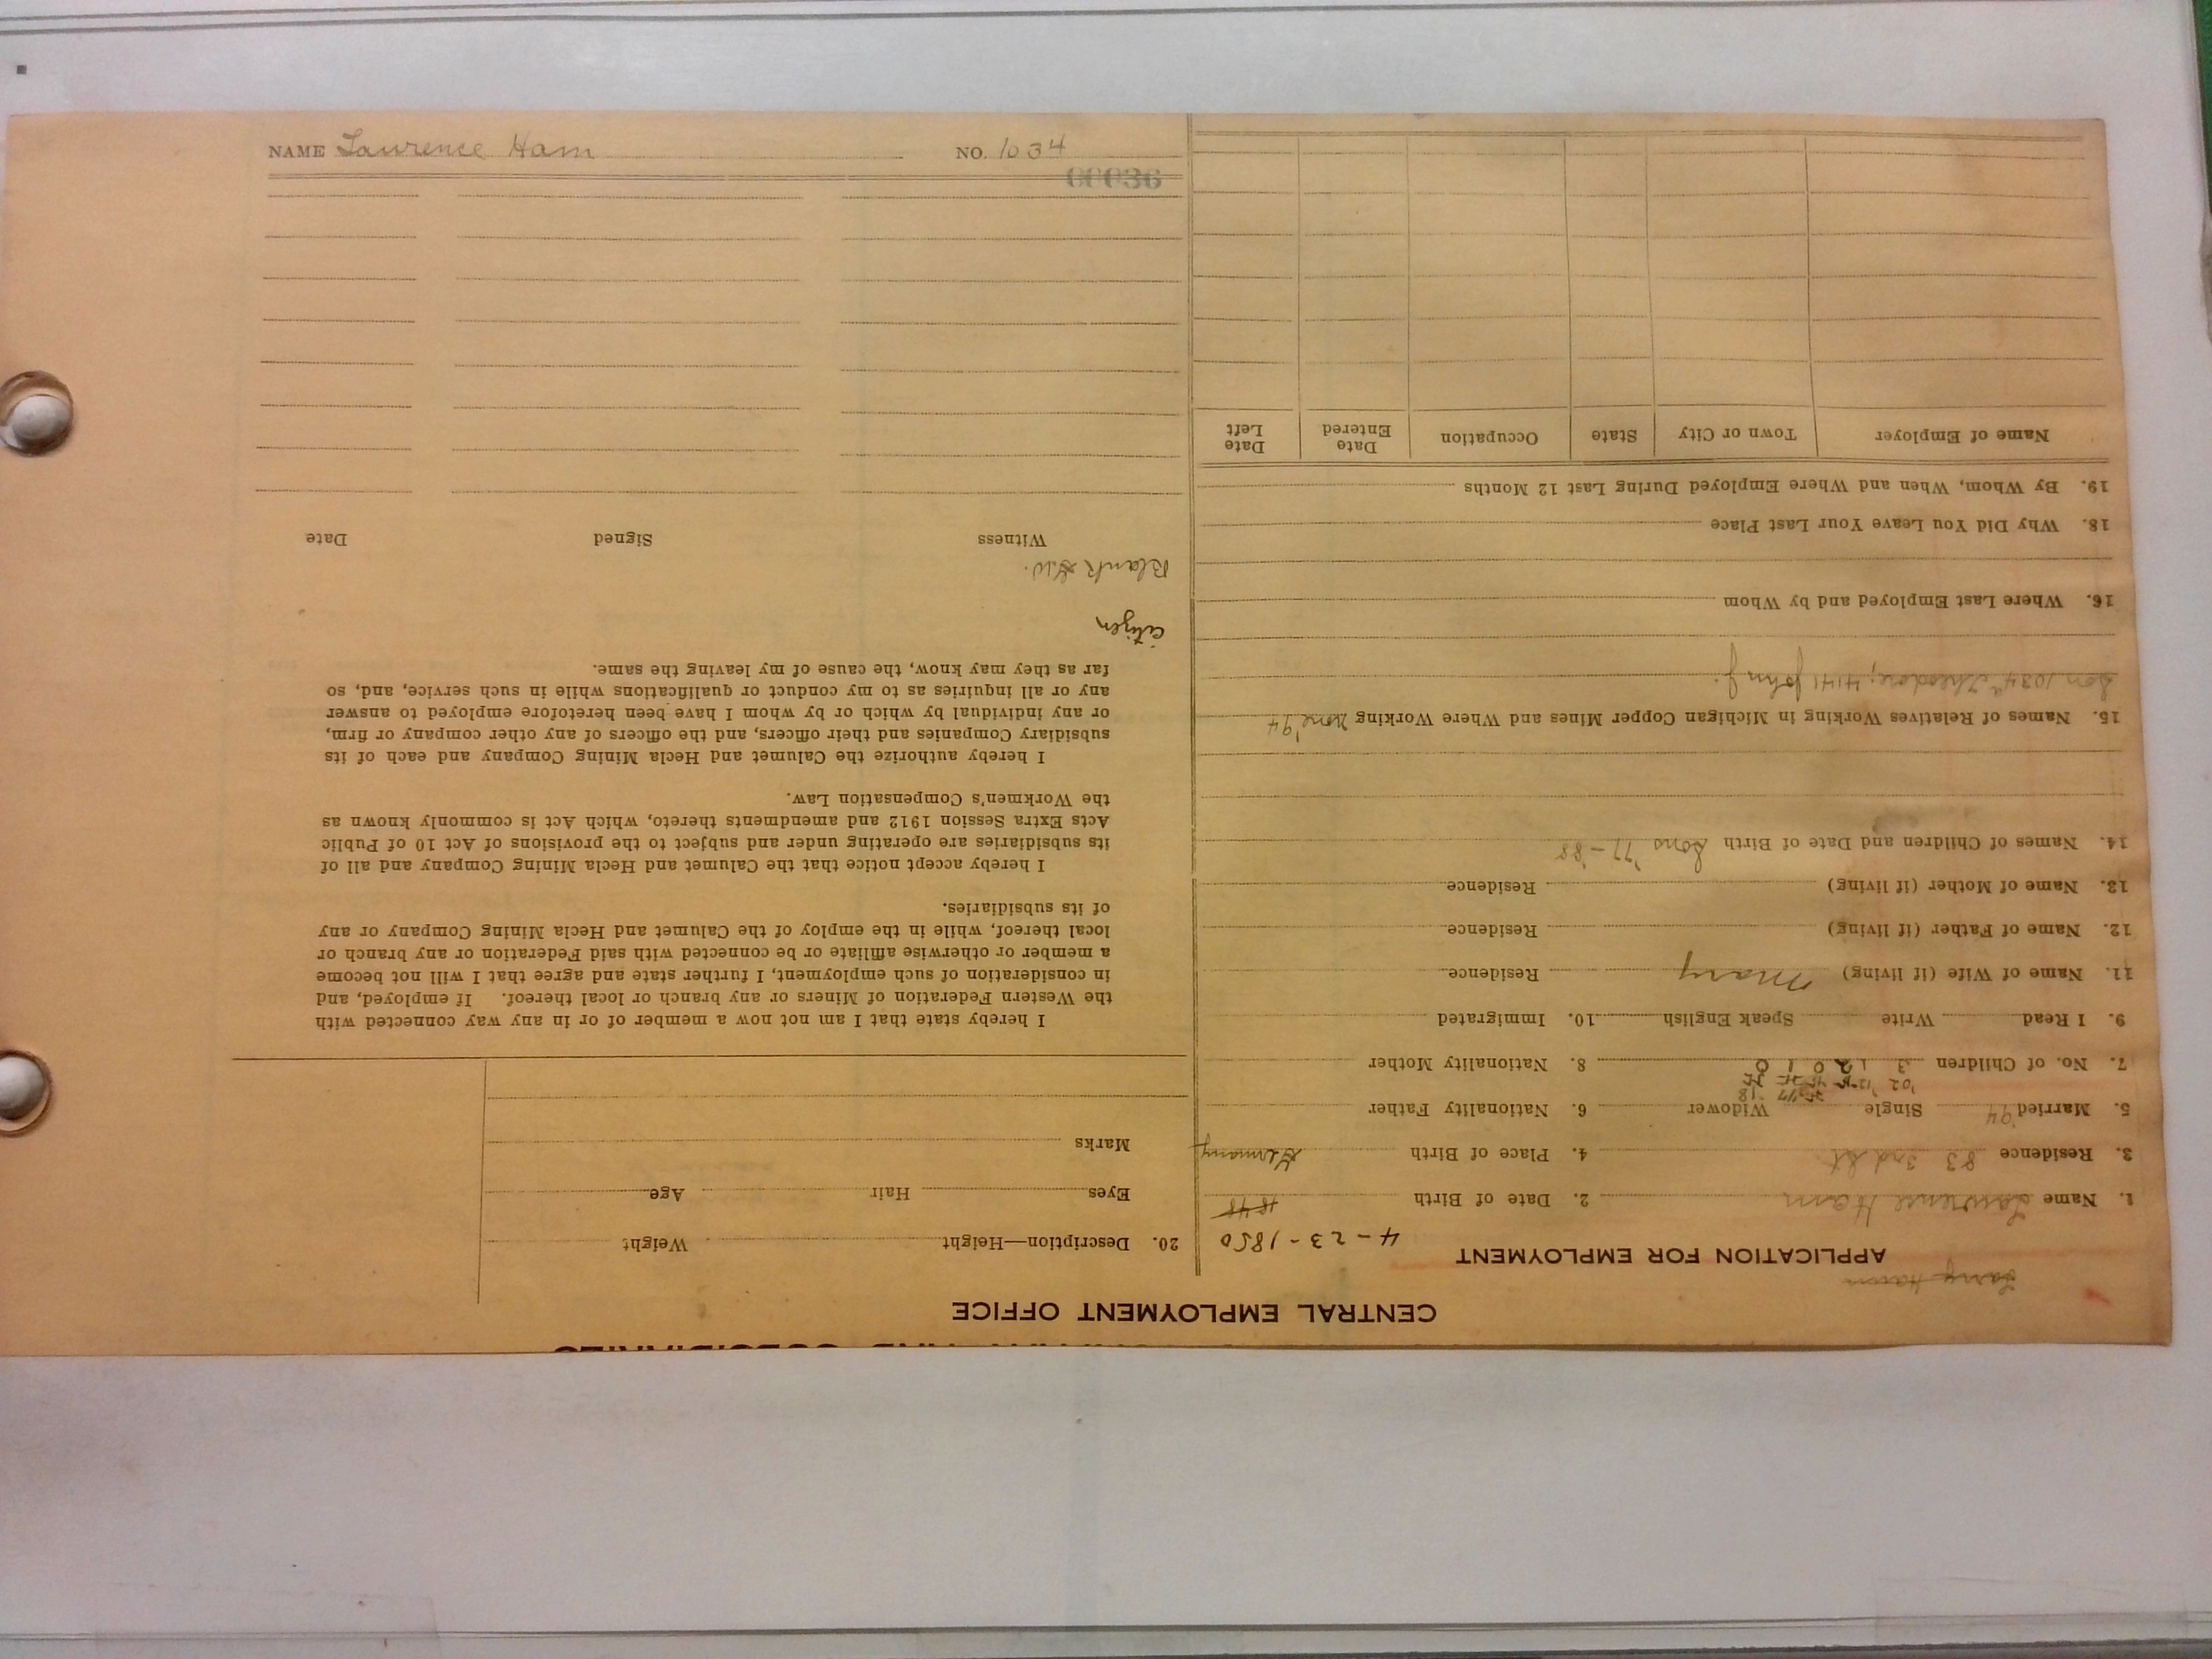 NAME Lawrence Ham NO. 1034
00036
CENTRAL EMPLOYMENT OFFICE
APPLICATION FOR EMPLOYMENT
4-23-1850
1. Name Lawrence Ham 2. Date of Birth 1848
3. Residence 83 3rd St 4. Place of Birth Germany
5. Married '94 Single Widower 6. Nationality Father
7. No. of Children 3 1 2 0 1 0 8. Nationality Mother
9. I Read Write Speak English 10. Immigrated
11. Name of Wife (if living) Mary Residence
12. Name of Father (if living) Residence
13. Name of Mother (if living) Residence
14. Names of Children and Date of Birth Sons '77-'88
15. Names of Relatives Working in Michigan Copper Mines and Where Working None '94
Son 1034 Theodore; 4141 John J.
16. Where Last Employed and by Whom
18. Why Did You Leave Your Last Place
19. By Whom, When and Where Employed During Last 12 Months
Name of Employer Town or City State Occupation Date Entered Date Left
20. Description—Height Weight
Eyes Hair Age
Marks
I hereby state that I am not now a member of or in any way connected with
the Western Federation of Miners or any branch or local thereof. If employed, and
in consideration of such employment, I further state and agree that I will not become
a member or otherwise affiliate or be connected with said Federation or any branch or
local thereof, while in the employ of the Calumet and Hecla Mining Company or any
of its subsidiaries.
I hereby accept notice that the Calumet and Hecla Mining Company and all of
its subsidiaries are operating under and subject to the provisions of Act 10 of Public
Acts Extra Session 1912 and amendments thereto, which Act is commonly known as
the Workmen's Compensation Law.
I hereby authorize the Calumet and Hecla Mining Company and each of its
subsidiary Companies and their officers, and the officers of any other company or firm,
or any individual by which or by whom I have been heretofore employed to answer
any or all inquiries as to my conduct or qualifications while in such service, and, so
far as they may know, the cause of my leaving the same.
citizen
Blank
Witness Signed Date